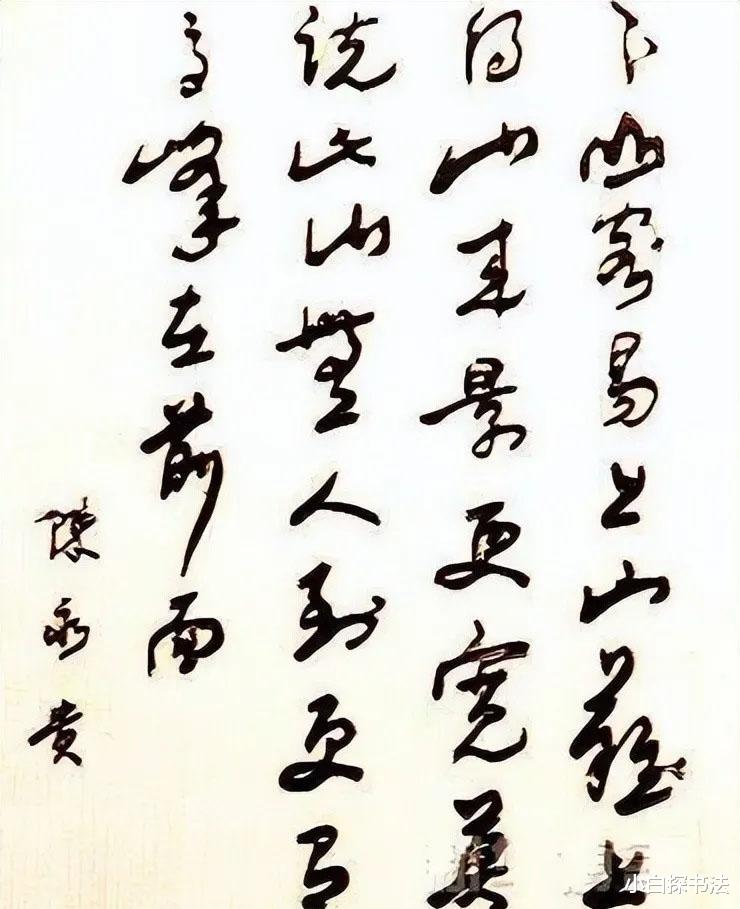 下山容易上山難上
得山来景更寬莫
說此山無人到更有
高峰在前面
陳永貴
小白探书法